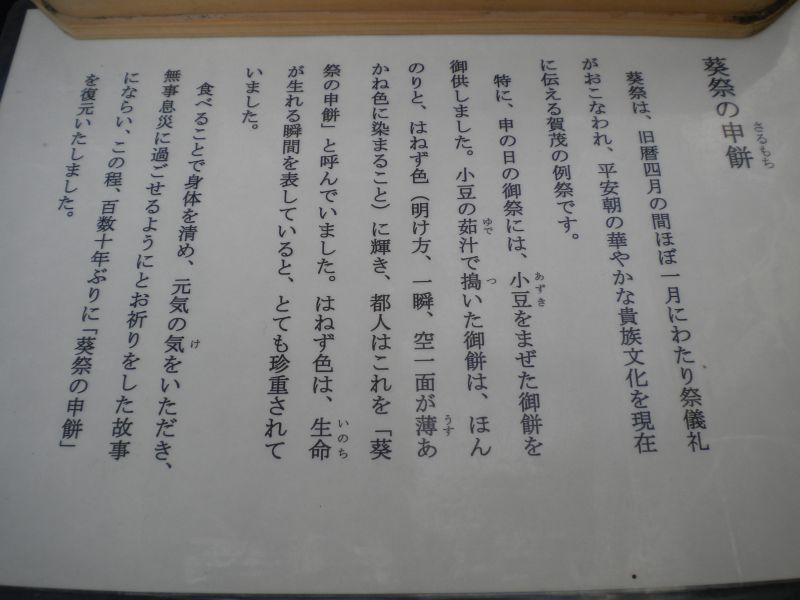 葵祭の申餅
さるもち
葵祭は、旧暦四月の間ほぼ一月にわたり祭儀礼
がおこなわれ、平安朝の華やかな貴族文化を現在
に伝える賀茂の例祭です。
特に、申の日の御祭には、小豆をまぜた御餅を
あずき
御供しました。小豆の茹汁で搗いた御餅は、ほん
ゆで
つ
のりと、はねず色（明け方、一瞬、空一面が薄あ
うす
かね色に染まること）に輝き、都人はこれを「葵
祭の申餅」と呼んでいました。はねず色は、生命
いのち
が生れる瞬間を表していると、とても珍重されて
いました。
食べることで身体を清め、元気の気をいただき、
け
無事息災に過ごせるようにとお祈りをした故事
にならい、この程、百数十年ぶりに「葵祭の申餅」
を復元いたしました。